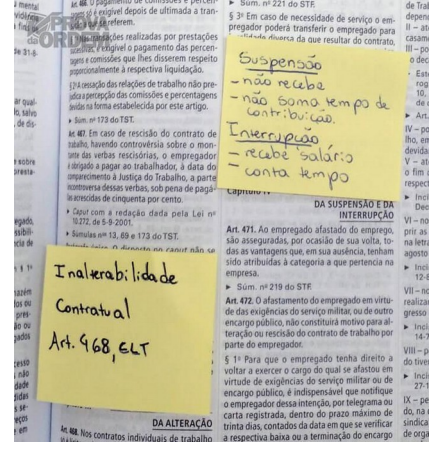 PROVA
DA ORDEM
Art. 466. O pagamento de comissões e percen-
só é exigível depois de ultimada a tran-
se referem.
realizadas por prestações
é exigível o pagamento das percen-
tagens e comissões que lhes disserem respeito
proporcionalmente à respectiva liquidação.
§ 2º A cessação das relações de trabalho não pre-
judica a percepção das comissões e percentagens
devidas na forma estabelecida por este artigo.
► Súm. nº 173 do TST.
Art. 467. Em caso de rescisão do contrato de
trabalho, havendo controvérsia sobre o mon-
tante das verbas rescisórias, o empregador
é obrigado a pagar ao trabalhador, à data do
comparecimento à Justiça do Trabalho, a parte
incontroversa dessas verbas, sob pena de pagá-
las acrescidas de cinquenta por cento.
► Caput com a redação dada pela Lei nº
10.272, de 5-9-2001.
► Súmulas nos 13, 69 e 173 do TST.
Inalterabilidade
Contratual
Art. 468, CLT
DA ALTERAÇÃO
Art. 468. Nos contratos individuais de trabalho
► Súm. nº 221 do STF.
§ 3º Em caso de necessidade de serviço o em-
pregador poderá transferir o empregado para
localidade diversa da que resultar do contrato,
Suspensão
- não recebe
- não soma tempo de
contribuição.
Interrupção
- recebe salário
- conta tempo
Capítulo IV
DA SUSPENSÃO E DA
INTERRUPÇÃO
Art. 471. Ao empregado afastado do emprego,
são asseguradas, por ocasião de sua volta, to-
das as vantagens que, em sua ausência, tenham
sido atribuídas à categoria a que pertencia na
empresa.
► Súm. nº 219 do STF.
Art. 472. O afastamento do empregado em virtu-
de das exigências do serviço militar, ou de outro
encargo público, não constituirá motivo para al-
teração ou rescisão do contrato de trabalho por
parte do empregador.
§ 1º Para que o empregado tenha direito a
voltar a exercer o cargo do qual se afastou em
virtude de exigências do serviço militar ou de
encargo público, é indispensável que notifique
o empregador dessa intenção, por telegrama ou
carta registrada, dentro do prazo máximo de
trinta dias, contados da data em que se verificar
a respectiva baixa ou a terminação do encargo